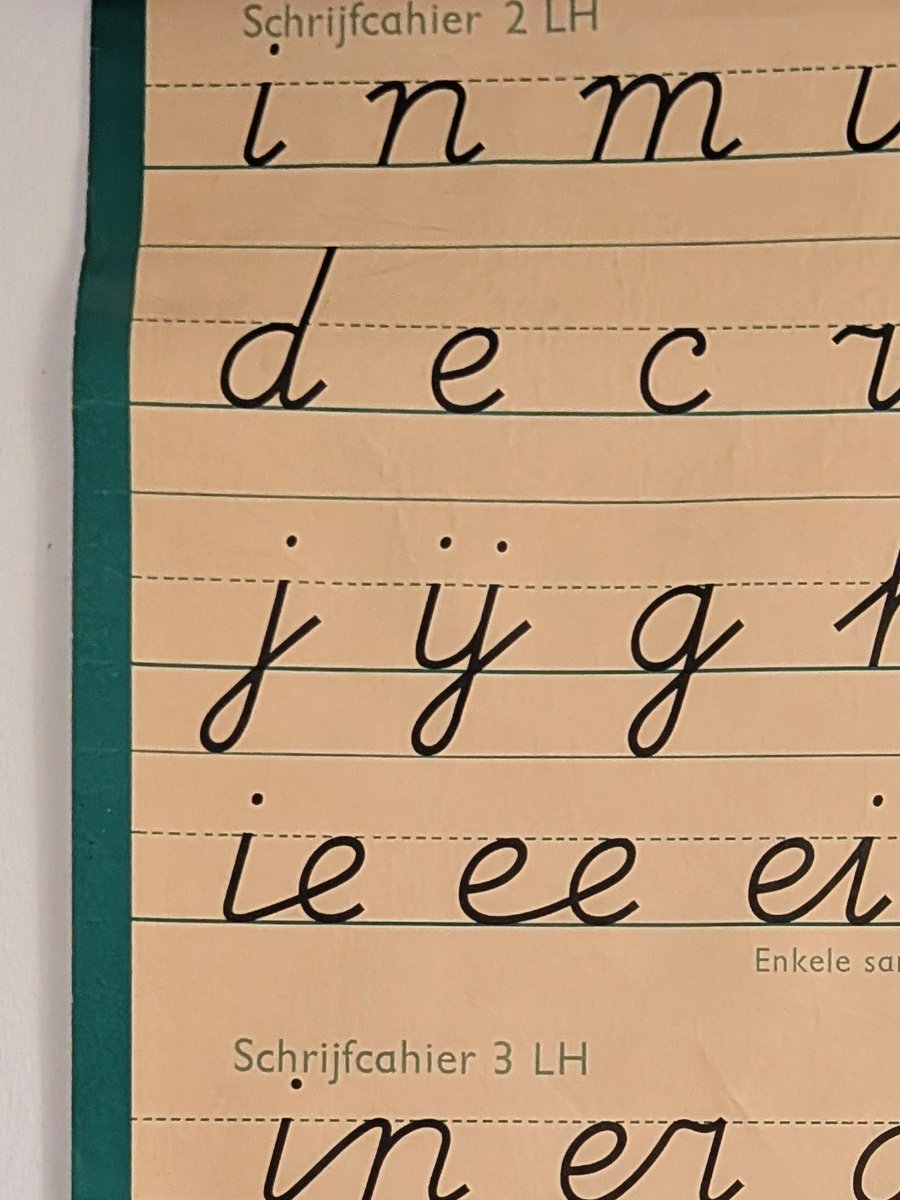 Schrijfcahier 2 LH
i n m
d e c
j ij g
ie ee ei
Enkele
Schrijfcahier 3 LH
in er